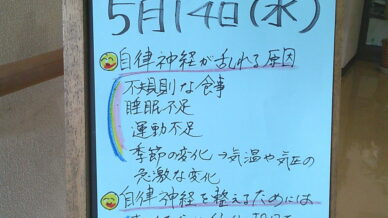 5月14日(水)
自律神経が乱れる原因
不規則な食事
睡眠不足
運動不足
季節の変化→気温や気圧の
急激な変化
自律神経を整えるためには